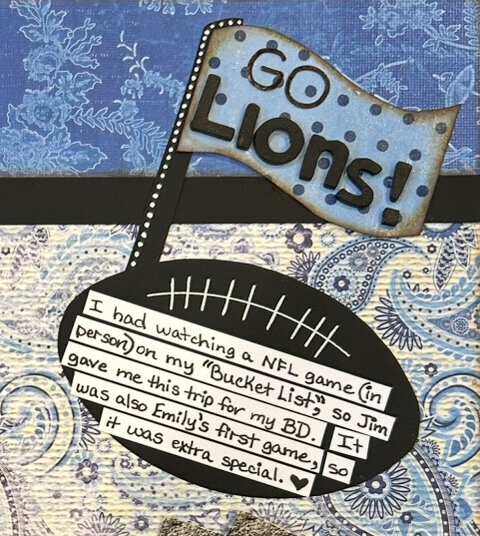 GO
Lions!
I had watching a NFL game (in
person) on my "Bucket List," so Jim
gave me this trip for my BD. It
was also Emily's first game, so
it was extra special. ♥